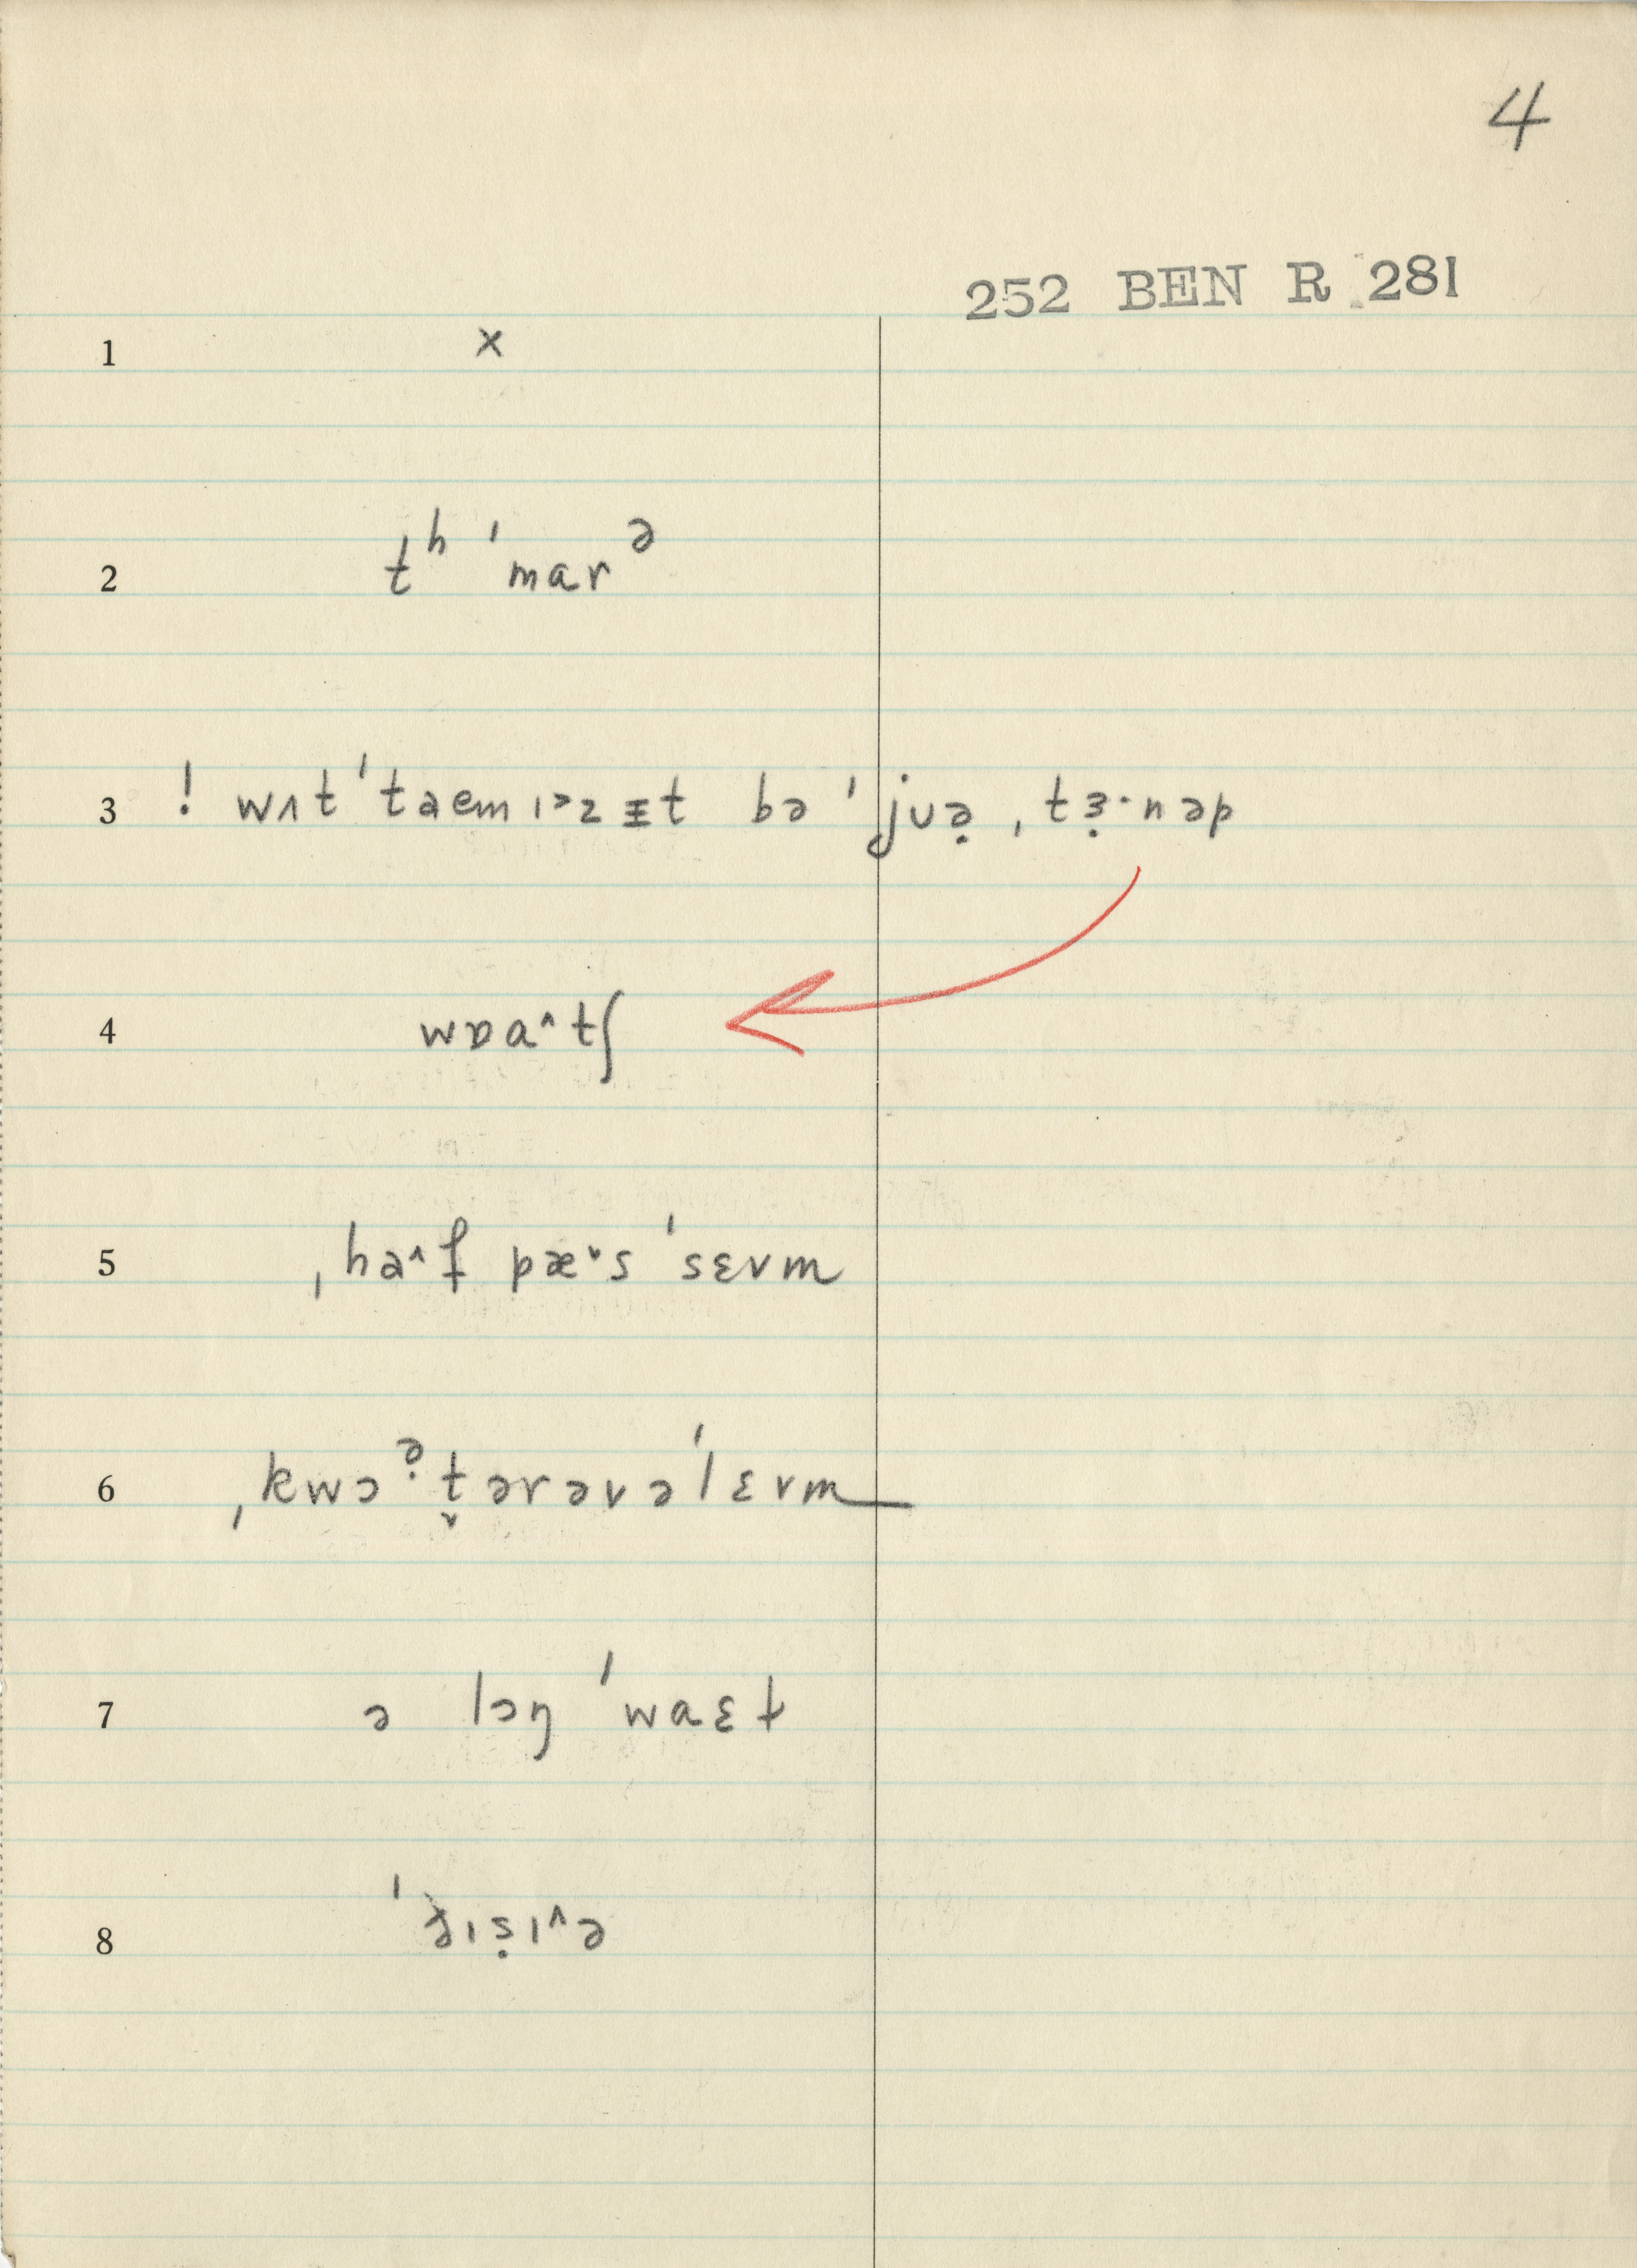 4
252 BEN R 281
1 x
2 tʰ ˈmarᵊ
3 ! wʌt ˈtaem ɪᵊz ɪt bə ˈjuə̣ , tɜ̣·nəp
4 wɒa^tʃ
5 ˌha^f pæˇs ˈsɛvm
6 ˌkwɔᵊ̣t̬ərəvəˈlɛvm
7 ə lɔŋ ˈwaɛt
8 ˈjɪṣɪ^ə